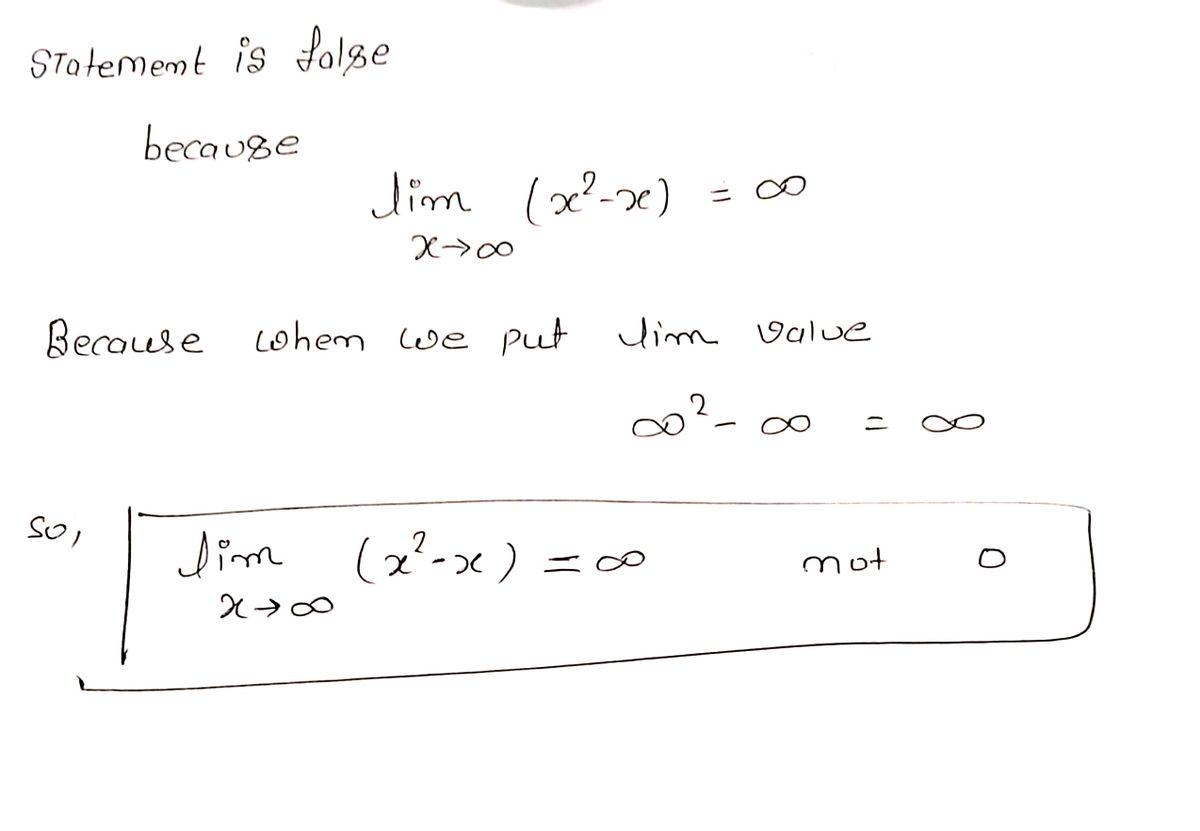 Statement is false
because
lim (x²-x) = ∞
x→∞
Because when we put lim value
∞² - ∞ = ∞
so, lim (x²-x) = ∞ not 0
x→∞